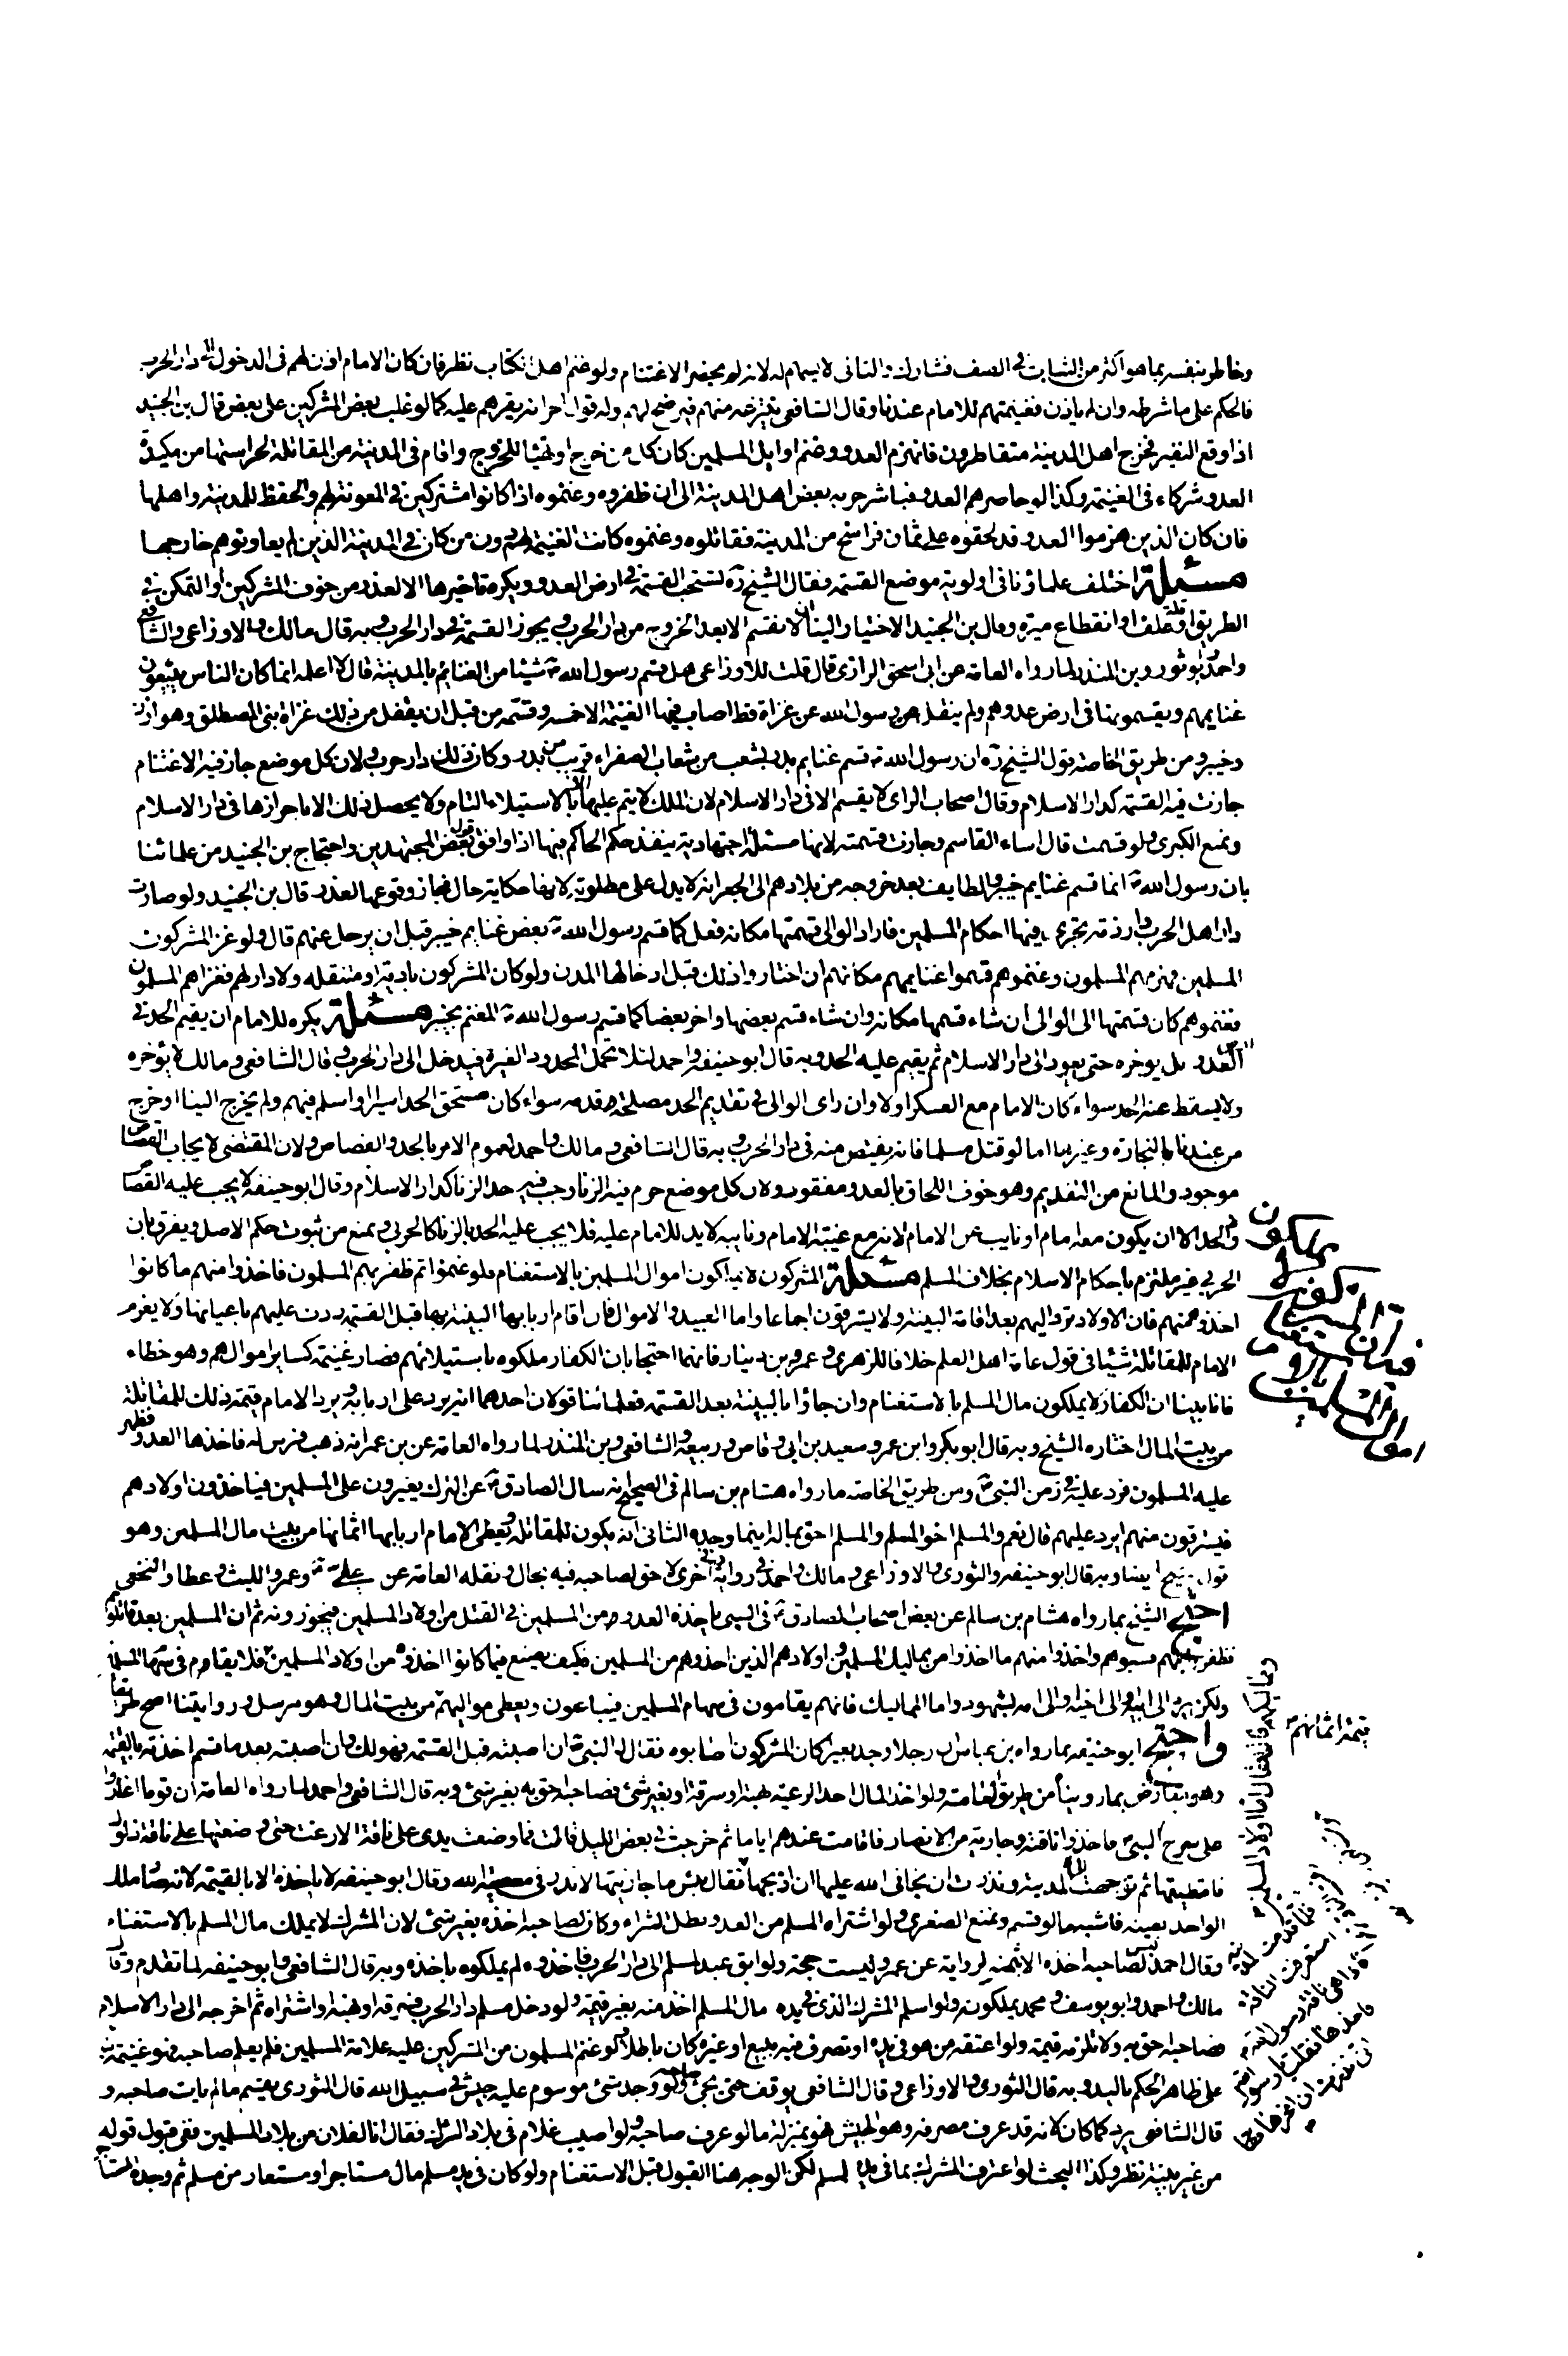 وخاطر بنفسه بما هو اكثر من الثابت في الصف فشارك والثاني لا يسهم له لانه لم يحضر الاغتنام ولو غنم اهل الكتاب نظر فان كان الامام اذن لهم في الدخول الى دار الحرب
فالحكم على ما شرطه وان لم ياذن فغنيمتهم للامام عندنا وقال الشافعي ينتزعه منهم فيرضخ لهم وله قول اخر انه يقرهم عليه كما لو غلب بعض المشركين على بعض قال بن الجنيد
اذا وقع النفير فخرج اهل المدينة متقاطرون فانهزم العدو وغنم اوايل المسلمين كان كل من خرج او تهيا للخروج واقام في المدينة من المقاتلة لحراستها من مكيدة
العدو شركاء في الغنيمة وكذا لو حاصرهم العدو فباشر حربه بعض اهل المدينة الى ان ظفروه وغنموه اذا كانوا مشتركين في المعونة لهم والحفظ للمدينة واهلها
فان كان الذين هزموا العدو قد لحقوه على ثمان فراسخ من المدينة فقاتلوه وغنموه كانت الغنيمة لهم دون من كان في المدينة الذين لم يعاونوهم خارجها
مسئلة اختلف علماؤنا في اولوية موضع القسمة فقال الشيخ ره تستحب القسمة في ارض العدو ويكره تاخيرها الا لعذر من خوف المشركين او التمكن في
الطريق او قلة علف او انقطاع ميرة وقال بن الجنيد الاختيار الينا ان لا نقسم الا بعد الخروج من دار الحرب ويجوز القسمة في دار الحرب وبه قال مالك والاوزاعي والشافعي
واحمد وابو ثور وبن المنذر لما رواه العامة عن ابي اسحق الرازي قال قلت للاوزاعي هل قسم رسول الله ص شيئا من الغنائم بالمدينة قال لا اعلمه انما كان الناس يتبعون
غنايمهم ويقسمونها في ارض عدوهم ولم ينفل عن رسول الله عن غزاة قط اصاب فيها الغنيمة الا خمسه وقسمه من قبل ان يقفل من ذلك غزاة بني المصطلق وهوازن
وخيبر ومن طريق الخاصة قول الشيخ ره ان رسول الله ص قسم غنايم بدر بشعب من شعاب الصفراء قريب من بدر وكان ذلك دار حرب ولان كل موضع جاز فيه الاغتنام
جازت فيه القسمة كدار الاسلام وقال اصحاب الراي لا يقسم الا في دار الاسلام لان الملك لا يتم عليها الا بالاستيلاء التام ولا يحصل ذلك الا باحرازها في دار الاسلام
ونمنع الكبرى ولو قسمت قال اساء القاسم وجازت قسمته لانها مسئلة اجتهادية ينفذ حكم الحاكم فيها اذا وافق قول بعض المجتهدين واحتجاج بن الجنيد من علمائنا
بان رسول الله ص انما قسم غنايم خيبر والطايف بعد خروجه من بلادهم الى الجعرانة لا يدل على مطلوبه لانها حكاية حال فجاز وقوعها لعذر قال بن الجنيد ولو صارت
دار اهل الحرب دار ذمة تجري فيها احكام المسلمين فاراد الوالي قسمتها مكانه فعل كما قسم رسول الله ص بعض غنايم خيبر قبل ان يرحل عنهم قال ولو غزا المشركون
المسلمين فهزمهم المسلمون وغنموهم قسموا غنايمهم مكانهم ان اختاروا ذلك قبل ادخالها المدن ولو كان المشركون بادية او متنقله ولا دار لهم فغزاهم المسلمون
فغنموهم كان قسمتها الى الوالي ان شاء قسمها مكانه وان شاء قسم بعضها واخر بعضا كما قسم رسول الله ص المغنم بخيبر مسئلة يكره للامام ان يقيم الحد في
ارض العدو بل يوخره حتى يعود الى دار الاسلام ثم يقيم عليه الحد وبه قال ابو حنيفة واحمد لئلا تحمل المحدود الغيرة فيدخل الى دار الحرب وقال الشافعي ومالك لا يؤخره
ولا يسقط عنه الحد سواء كان الامام مع العسكر او لا وان راى الوالي في تقديم الحد مصلحة قدمه سواء كان مستحق الحد اسيرا او اسلم فيهم ولم يخرج الينا او خرج
من عندنا بالتجارة وغيرها اما لو قتل مسلما فانه يقتص منه في دار الحرب وبه قال الشافعي ومالك واحمد لعموم الامر بالحد والقصاص ولان المقتضي لايجاب القصاص
موجود والمانع من التقديم وهو خوف اللحاق بالعدو مفقود ولان كل موضع حرم فيه الزنا وجب فيه حد الزنا كدار الاسلام وقال ابو حنيفة لا يجب عليه القصاص
والحد الا ان يكون معه امام او نايب عن الامام لانه مع غيبة الامام ونايبه لا يد للامام عليه فلا يجب عليه الحد بالزنا كالحربي ونمنع من ثبوت حكم الاصل ويفرق بان
الحربي غير ملتزم باحكام الاسلام بخلاف المسلم مسئلة المشركون لا يملكون اموال المسلمين بالاستغنام فلو غنموا ثم ظفر بهم المسلمون فاخذوا منهم ما كانوا
اخذوه منهم فان الاولاد ترد اليهم بعد اقامة البينة ولا يسترقون اجماعا واما العبيد والاموال فان اقام اربابها البينة بها قبل القسمة ردت عليهم باعيانها ولا يغرم
الامام للمقاتلة شيئا في قول عامة اهل العلم خلافا للزهري وعمرو بن دينار فانهما احتجا بان الكفار ملكوه باستيلائهم فصار غنيمة كسائر اموالهم وهو خطاء
فانا بينا ان الكفار لا يملكون مال المسلم بالاستغنام وان جاؤا بالبينة بعد القسمة فعلمائنا قولان احدهما انه يرد على اربابه ويرد الامام قيمة ذلك للمقاتلة
من بيت المال اختاره الشيخ وبه قال ابو بكر وابن عمر وسعيد بن ابي وقاص وربيعة والشافعي وبن المنذر لما رواه العامة عن بن عمر انه ذهب فرس له فاخذها العدو فظهر
عليه المسلمون فرد عليه في زمن النبي ص ومن طريق الخاصة ما رواه هشام بن سالم في الصحيح انه سال الصادق ع عن الترك يغيرون على المسلمين فياخذون اولادهم
فيسترقون منهم ايرد عليهم قال نعم والمسلم اخو المسلم والمسلم احق بماله اينما وجده الثاني انه يكون للمقاتلة ويعطي الامام اربابها اثمانها من بيت مال المسلمين وهو
قول الشيخ ايضا وبه قال ابو حنيفة والثوري والاوزاعي ومالك واحمد في رواية وفي اخرى لا حق لصاحبه فيه بحال ونقله العامة عن علي ع وعمر والليث وعطا والنخعي
احتج الشيخ بما رواه هشام بن سالم عن بعض اصحاب الصادق ع في السبي ياخذه العدو من المسلمين في القتل من اولاد المسلمين فيحوزونه ثم ان المسلمين بعد قاتلوهم
فظفروا بهم فسبوهم واخذوا منهم ما اخذوا من مماليك المسلمين واولادهم الذين اخذوهم من المسلمين فكيف يصنع فيما كانوا اخذوه من اولاد المسلمين فلا يقام في سهام المسلمين
ولكن يرد الى ابيه والى اخيه والى امه بشهود واما المماليك فانهم يقامون في سهام المسلمين فيباعون ويعطى مواليهم من بيت المال وهو مرسل وروايتنا اصح طريقا
واحتج ابو حنيفة بما رواه بن عباس ان رجلا وجد بعيرا كان المشركون اصابوه فقال له النبي ص ان اصبته قبل القسمة فهو لك وان اصبته بعد ما قسم اخذته بالقيمة
وهو معارض بما رويناه من طريق العامة ولو اخذ المال احد الرعية بهبة او سرقة او بغير شئ فصاحبه احق به بغير شئ وبه قال الشافعي واحمد لما رواه العامة ان قوما اغاروا
على سرح النبي ص فاخذوا ناقته وجارية من الانصار فاقامت عندهم اياما ثم خرجت في بعض الليل قالت فما وضعت يدي على ناقة الا رغت حتى وضعتها على ناقة ذلول
فامتطيتها ثم توجهت الى المدينة ونذرت ان نجاني الله عليها ان اذبحها فقال بئس ما جازيتها لا نذر في معصية الله وقال ابو حنيفة لا ياخذه الا بالقيمة لانه صار ملك
الواحد بعينه فاشبه ما لو قسم ونمنع الصغرى ولو اشتراه المسلم من العدو بطل الشراء وكان لصاحبه اخذه بغير شئ لان المشرك لا يملك مال المسلم بالاستغناء
وقال احمد ليس لصاحبه اخذه الا بثمنه لرواية عن عمر وليست حجة ولو ابق عبد لمسلم الى دار الحرب فاخذوه لم يملكوه باخذه وبه قال الشافعي وابو حنيفة لما تقدم وقال
مالك واحمد وابو يوسف ومحمد يملكونه ولو اسلم المشرك الذي في يده مال المسلم اخذ منه بغير قيمة ولو دخل مسلم دار الحرب فسرقه او نهبه او اشتراه ثم اخرجه الى دار الاسلام
فصاحبه احق به ولا تلزمه قيمة ولو اعتقه من هو في يده او تصرف فيه ببيع او غيره كان باطلا ولو غنم المسلمون من المشركين عليه علامة المسلمين فلم يعلم صاحبه فهو غنيمة
على ظاهر الحكم باليد وبه قال الثوري والاوزاعي وقال الشافعي يوقف حتى يجئ صاحبه ولو وجد شئ موسوم عليه جيش في سبيل الله قال الثوري يقسم مالم يات صاحبه و
قال الشافعي يرد كما كان لانه قد عرف مصرفه وهو الجيش فهو بمنزلة ما لو عرف صاحبه ولو اصيب غلام في بلاد الترك فقال انا لفلان من بلاد المسلمين ففي قبول قوله
من غير بينة نظر وكذا البحث لو اعترف المشرك بما في يده لمسلم لكن الوجه هنا القبول قبل الاستغنام ولو كان في يد مسلم مال مستاجر او مستعار من مسلم ثم وجده المستاجر
اموال المسلمين
قيمة اثمانهم